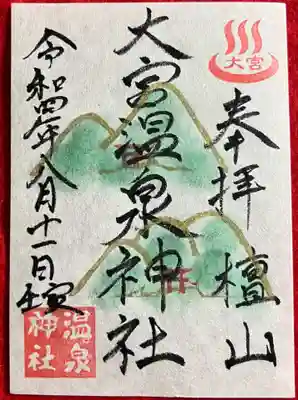 大宮
奉拝 檀山
大宮温泉神社
令和四年八月十一日
温泉
神社